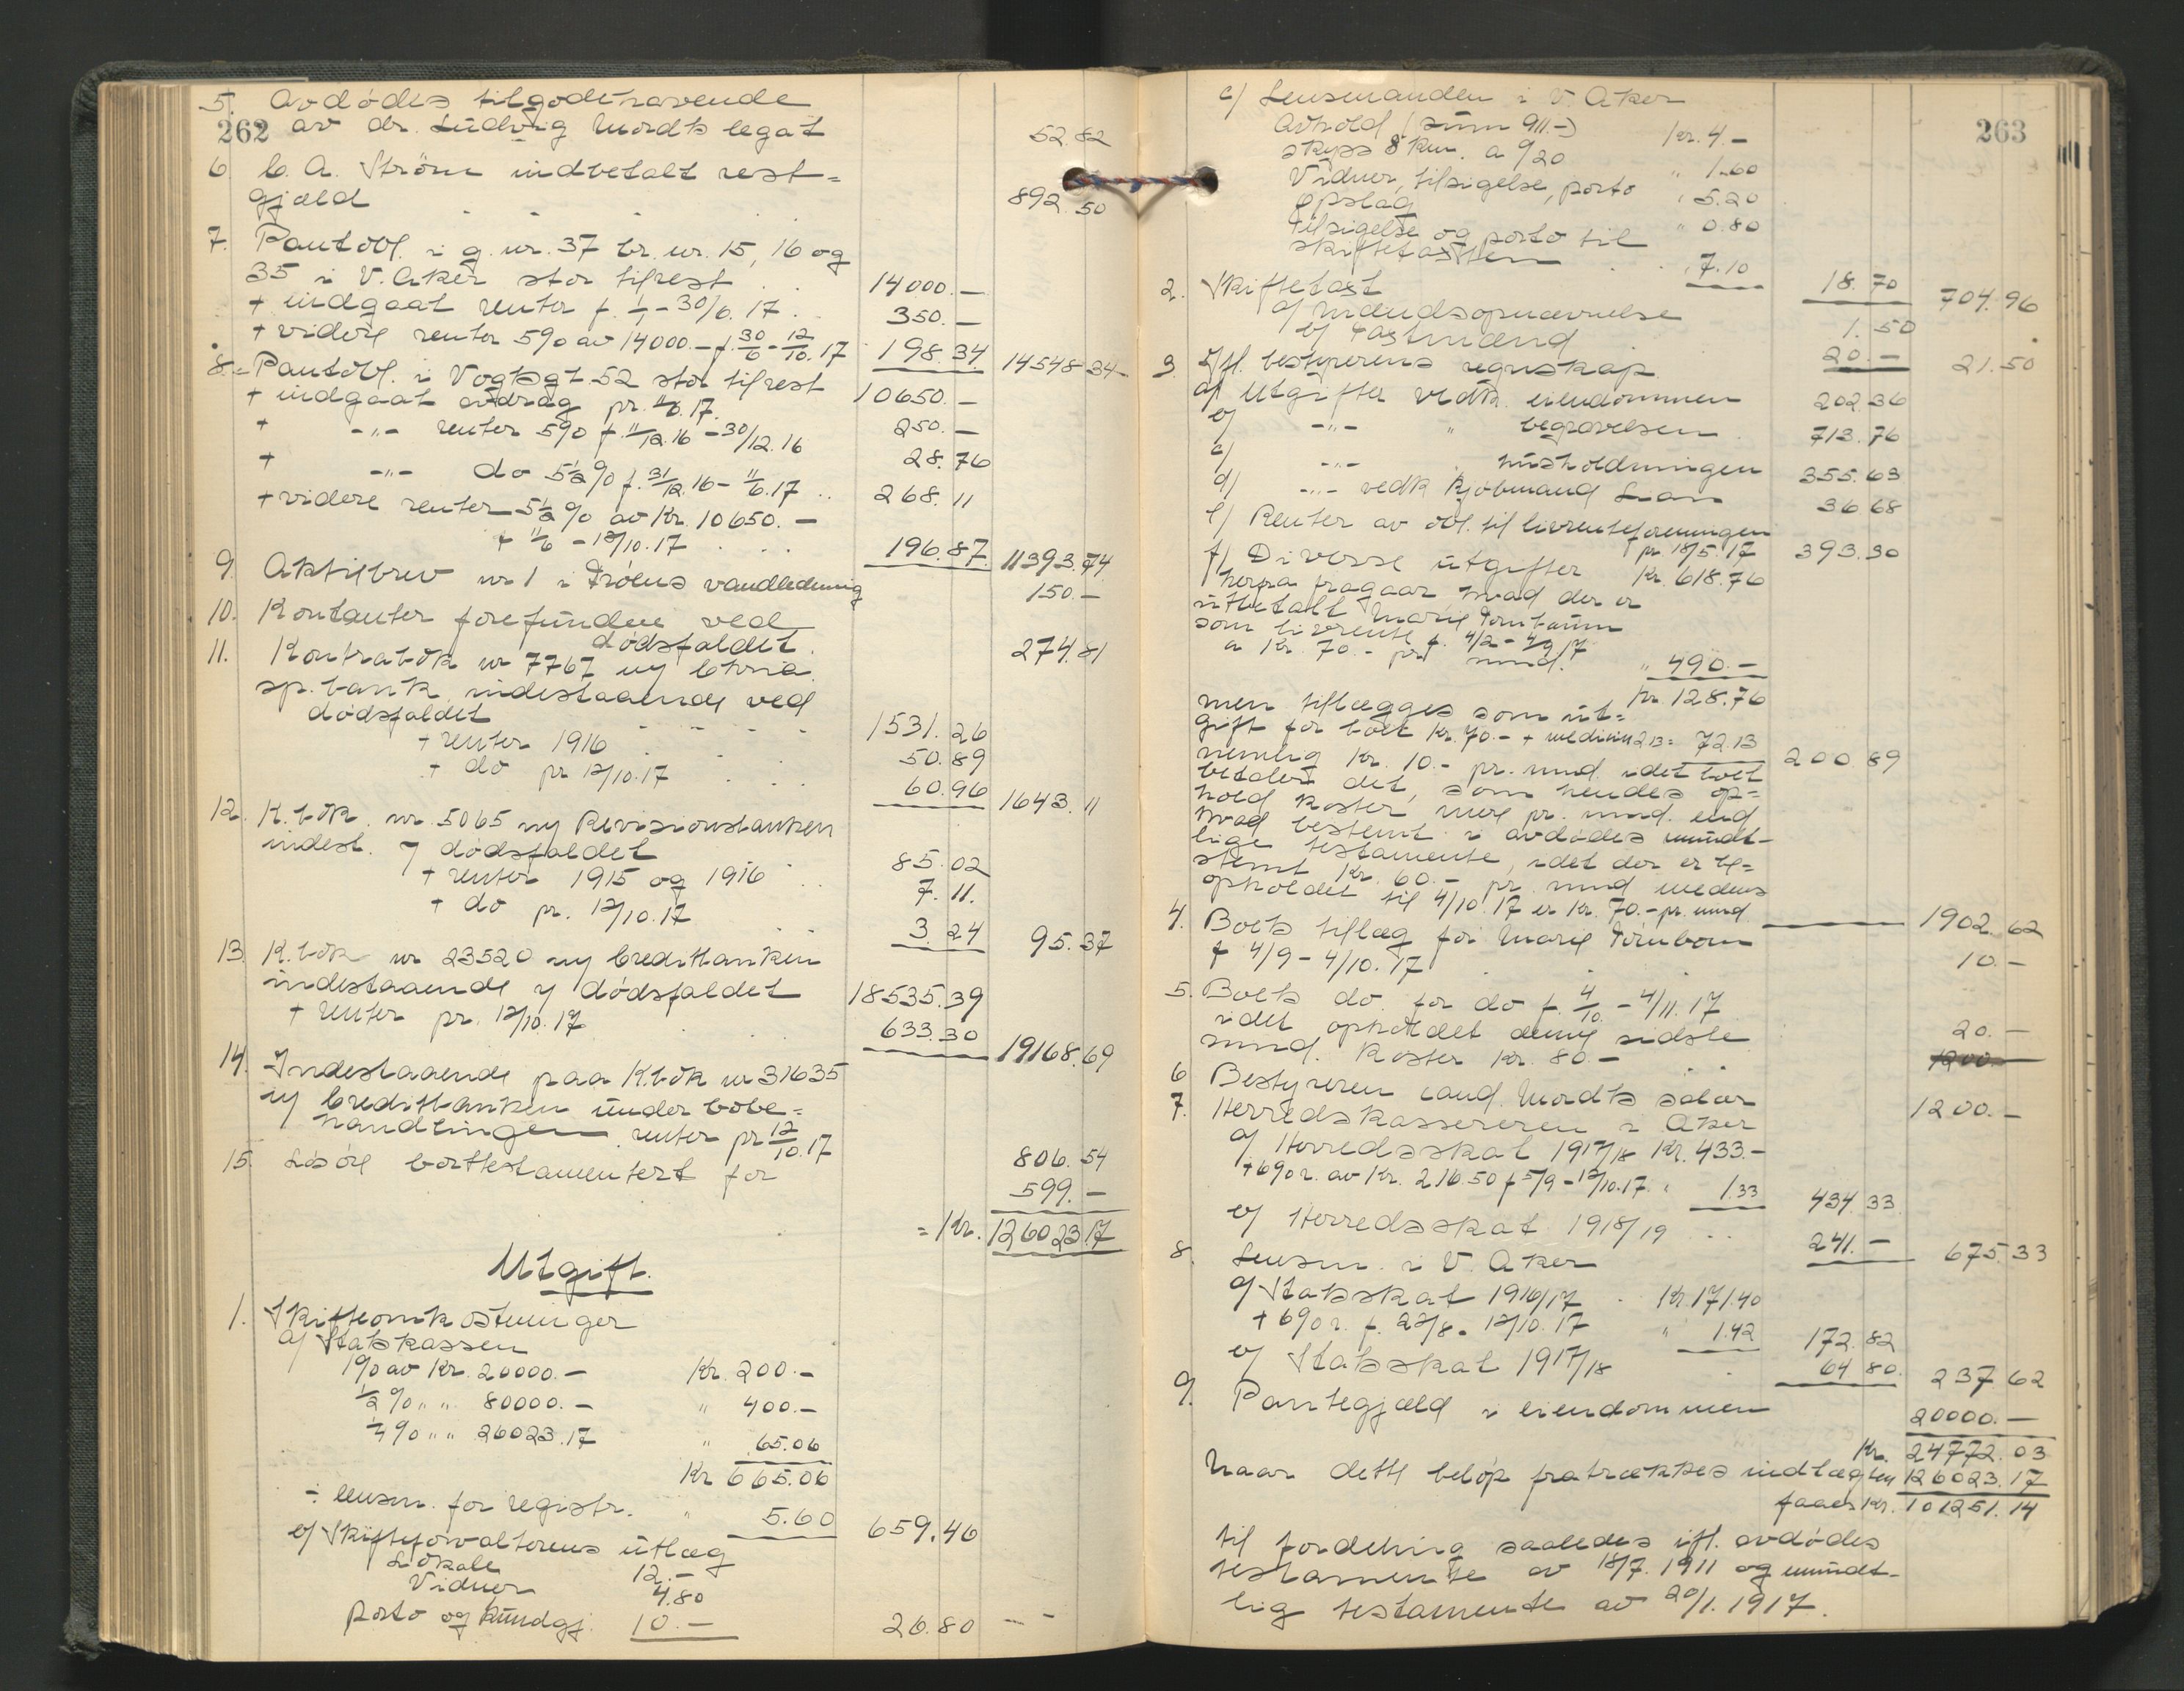 262
5. Avdødes tilgodehavende
av dr. Ludvig Mordts legat 52.82
6. C. A. Strøm indbetalt rest=
gjæld 892.50
7. Pantobl. i g. nr. 37 br. nr. 15, 16 og
35 i V. Aker stor tilrest 14000.—
+ indgaat renter f. 1/1 - 30/6. 17. 350.—
+ videre renter 5% av 14000.— f. 30/6 - 12/10. 17 198.34 14548.34
8. Pantobl. i Vogtsgt 52 stor tilrest 10650.—
+ indgaat avdrag pr. 11/6. 17. 250.—
+ -„- renter 5% f. 11/12. 16 - 30/12. 16 28.76
+ -„- do 5½% f. 31/12. 16 - 11/6. 17 268.11
+ videre renter 5½% av Kr. 10650.—
f 11/6 - 12/10. 17 196.87 11393.74
9. Aktiebrev nr 1 i Trøens vandledning 150.—
10. Kontanter forefunden ved
dødsfaldet. 274.81
11. Kontrabok nr 7767 m/ Chria
sp. bank indestaaende ved
dødsfaldet 1531.26
+ renter 1916 50.89
+ do pr 12/10. 17 60.96 1643.11
12. K. bok. nr. 5065 m/ Revisionsbanken
indest. v/ dødsfaldet 85.02
+ renter 1915 og 1916 7.11.
+ do pr. 12/10. 17 3.24 95.37
13. K. bok nr 23520 m/ Creditbanken
indestaaende v/ dødsfaldet 18535.39
+ renter pr. 12/10. 17 633.30 19168.69
14. Indestaaende paa K.bok nr 31635
m/ Creditbanken under bobe=
handlingen. renter pr 12/10. 17 806.54
15. Løsøre borttestamentert for 599.—
= Kr. 126023.17
Utgift.
1. Skifteomkostninger
a/ Statskassen
1% av Kr. 20000.— Kr. 200.—
½% „ „ 80000.— „ 400.—
¼% „ „ 26023.17 „ 65.06
Kr 665.06
÷ lensm. for registr. „ 5.60 659.46
b/ Skifteforvalterens utlæg
Lokale 12.—
Vidner 4.80
Porto og kundgj. 10.— 26.80
263
c/ Lensmanden i V. Aker
Avhold (sum 911.—) Kr. 4.—
skyss 8 km. a 9/20 „ 1.60
Vidner, tilsigelse, porto „ 5.20
opslag „ 0.80
Tilsigelse og porto til
skiftetaxten 7.10 18.70 704.96
2. Skiftetaxt
a/ Mændsopnævnelse 1.50
b/ Taxtmænd 20.— 21.50
3. Ifl. bestyrerens regnskap.
a/ Utgifter vedk. eiendommen 202.36
b/ -„- „ begravelsen 713.76
c/ -„- „ husholdningen 355.63
d/ -„- vedk kjøbmand 36 68
e/ Renter av obl. til livrenteforeningen
pr. 18/5. 17 393.30
f/ Diverse utgifter Kr. 618.76
herfra fragaar hvad der er
utbetalt Marie Tornbaum
som livrente f. 4/2 - 4/9 17
a Kr. 70.- pr. mnd. „ 490.—
Kr. 128.76
men tillægges som ut=
gift for boet Kr. 70.— + medicin 2.13 = 72.13 200 89
nemlig Kr. 10.- pr. mnd. idet boet
betaler det, som hendes op=
hold koster mere pr. mnd. end
hvad bestemt i avdødes mundt-
lige testamente, idet der er be=
stemt Kr. 60.— pr. mnd medens
opholdet til 4/10. 17 er Kr. 70.- pr. mnd. 1902.62
4. Boets tillæg for Marie Tornbom
f 4/9 - 4/10. 17 10.—
5. Boets do. for do f. 4/10. - 4/11. 17
idet opholdet denne sidste 20.—
mnd. koster Kr. 80.— 1200.—
6 Bestyreren cand. Mordts salær 1200.—
7. Herredskassereren i Aker
a/ Herredsskat 1917/18 Kr. 433.—
+ 6% r. av Kr. 216.50 f 5/9 - 12/10. 17. „ 1.33 434.33
b/ Herredsskat 1918/19 241.— 675.33
8. Lensm. i V. Aker
a/ Statsskat 1916/17 Kr. 171.40
+ 6% r. f. 22/8 - 12/10. 17 „ 1.42 172.82
b/ Statsskat 1917/18 64 80. 237 62
9. Pantegjæld i eiendommen 20000.—
Kr. 24772.03
Naar dette beløp fratrækkes indtægten 126023.17
faaes Kr. 101251.14
til fordeling saaledes ifl. avdødes
testamente av 18/7. 1911 og mundt-
lig testamente av 20/1. 1917.